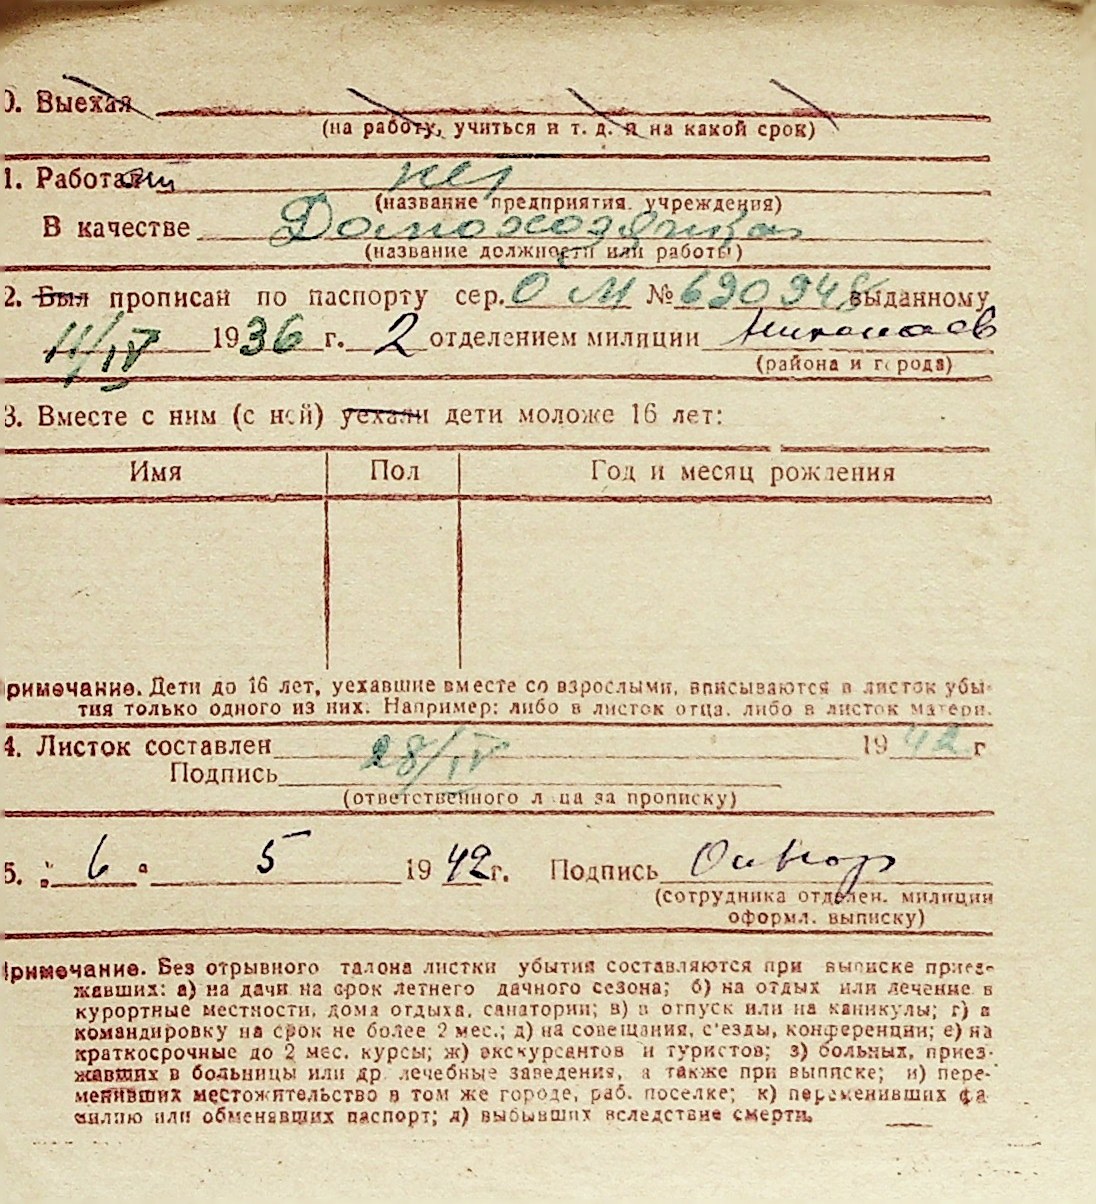 0. Выехал
(на работу, учиться и т. д. и на какой срок)
1. Работает нет
(название предприятия, учреждения)
В качестве Домохозяйка
(название должности или работы)
2. Был прописан по паспорту сер. ОМ № 690948 выданному
11/IV 1936 г. 2 отделением милиции Николаев
(района и города)
3. Вместе с ним (с ней) уехали дети моложе 16 лет:
Имя Пол Год и месяц рождения
римечание. Дети до 16 лет, уехавшие вместе со взрослыми, вписываются в листок убы-
тия только одного из них. Например: либо в листок отца, либо в листок матери.
4. Листок составлен 28/IV 1942 г
Подпись
(ответственного лица за прописку)
5. „6" 5 1942 г. Подпись
(сотрудника отделен. милиции
оформл. выписку)
римечание. Без отрывного талона листки убытия составляются при выписке приез-
жавших: а) на дачи на срок летнего дачного сезона; б) на отдых или лечение в
курортные местности, дома отдыха, санатории; в) в отпуск или на каникулы; г) в
командировку на срок не более 2 мес.; д) на совещания, с'езды, конференции; е) на
краткосрочные до 2 мес. курсы; ж) экскурсантов и туристов; з) больных, приез-
жавших в больницы или др. лечебные заведения, а также при выписке; и) пере-
менивших местожительство в том же городе, раб. поселке; к) переменивших фа
милию или обменявших паспорт; л) выбывших вследствие смерти.